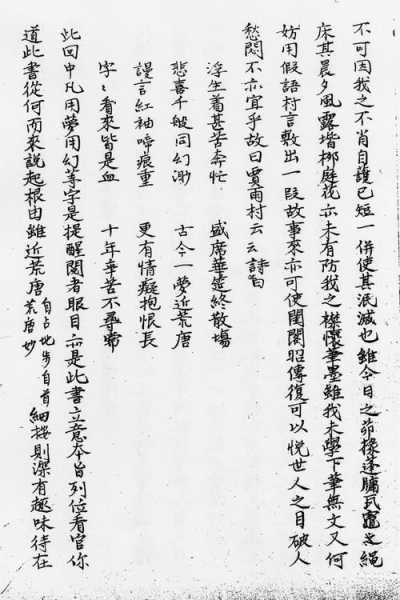 不可因我之不肖自護己短一併使其泯滅也雖今日之茆椽蓬牖瓦竈绳
床其晨夕風露堦柳庭花亦未有防我之襟懷筆墨雖我未學下筆無文又何
妨用假語村言敷出一段故事來亦可使閨閣昭傳復可以悅世人之目破人
愁悶不亦宜乎故曰賈雨村云云詩曰
浮生着甚苦奔忙　盛席華筵終散塲
悲喜千般同幻渺　古今一夢近荒唐
謾言紅袖啼痕重　更有情癡抱恨長
字〻看來皆是血　十年辛苦不尋常
此囬中凡用夢用幻等字是提醒閱者眼目亦是此書立意本旨列位看官你
道此書從何而來說起根由雖近荒唐自占地步自首荒唐妙細按則深有趣味待在